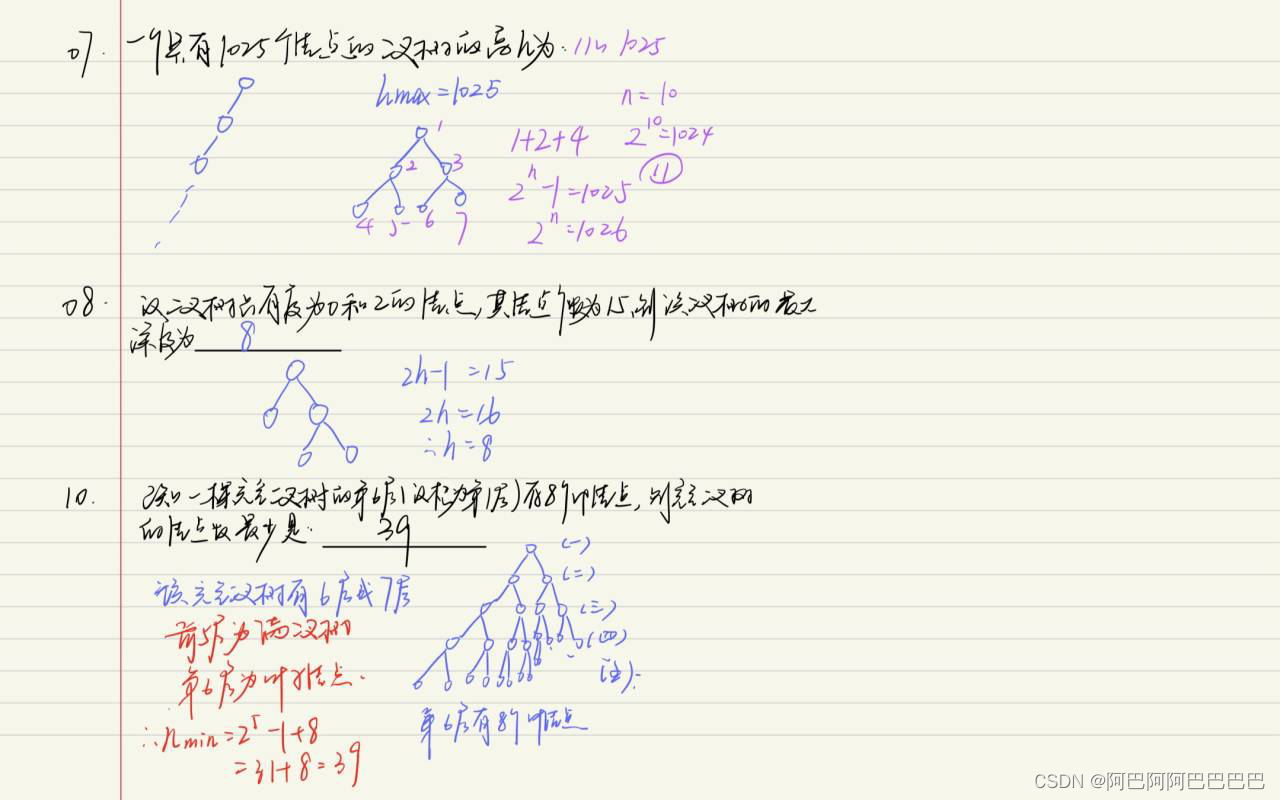 07. 一个具有1025个结点的二叉树的高h为: 11~1025
hmax=1025
n=10
1+2+4
2^10=1024
2^n-1=1025
11
2^n=1026
1
2
3
4 5 6 7
08. 设二叉树只有度为0和2的结点,其结点个数为15,则该二叉树的最大
深度为 8
2h-1=15
2h=16
∴h=8
10. 已知一棵完全二叉树的第6层(设根为第1层)有8个叶结点,则完全二叉树
的结点数最少是: 39
(一)
(二)
(三)
(四)
(五).
该完全二叉树有6层或7层
前5层为满二叉树
第6层为叶子结点.
∴nmin=2^5-1+8
=31+8=39
第6层有8个叶结点
CSDN @阿巴阿阿巴巴巴巴